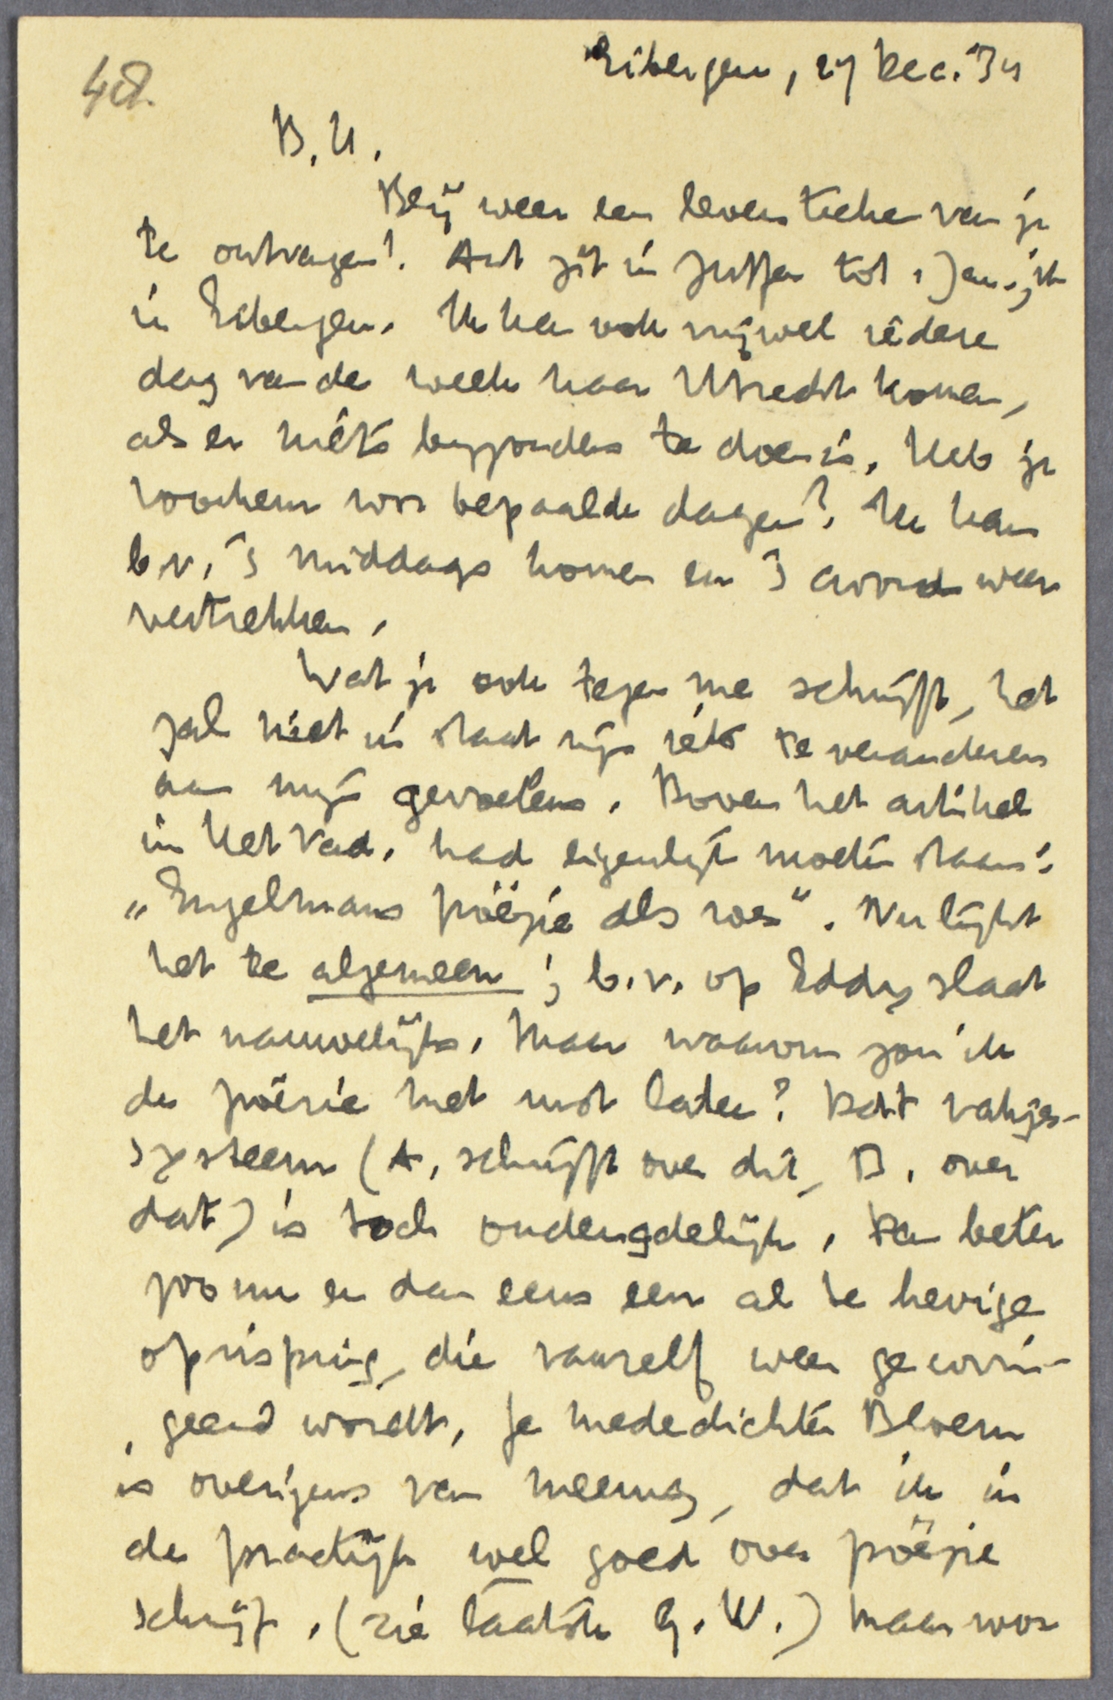 48.
Eibergen, 27 Dec. '34
B. H.,
Blij weer een levensteken van je
te ontvangen! Ant zit in Zutfen tot 1 Jan., ik
in Eibergen. Ik kan ook vrijwel iedere
dag van de week naar Utrecht komen,
als er niets bijzonders te doen is. Heb je
voorkeur voor bepaalde dagen? Ik kan
b.v. 's middags komen en 's avonds weer
vertrekken.
Wat je ook tegen me schrijft, het
zal niet in staat zijn iets te veranderen
aan mijn gevoelens. Boven het artikel
in Het Vad. had eigenlijk moeten staan:
„Engelmans poëzie als roes". Nu lijkt
het te algemeen; b.v. op Eddy slaat
het nauwelijks. Maar waarom zou ik
de poëzie met rust laten? Dat vakjes-
systeem (A. schrijft over dit, B. over
dat) is toch ondeugdelijk. Dan beter
zoo nu en dan eens een al te hevige
oprisping, die vanzelf weer gecorri-
geerd wordt. Je mededichter Bloem
is overigens van meening, dat ik in
de practijk wel goed over poëzie
schrijf. (zie laatste G. W.) Maar voor